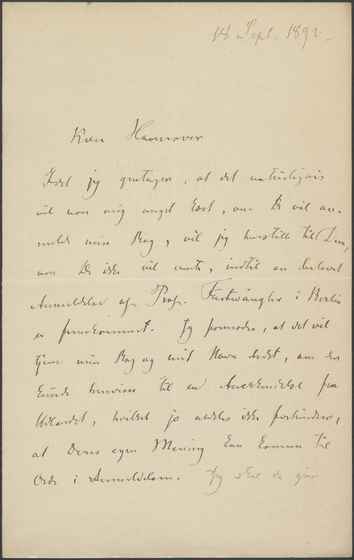 14 Sept. 1892.
Kære Hannover
Idet jeg gentager, at det naturligvis
vil være mig meget kært, om De vil an-
melde min Bog, vil jeg henstille til Dem,
om De ikke vil vente, indtil en lovet
Anmeldelse af Prof. Furtwängler i Berlin
er fremkommet. Jeg formoder, at det vil
gjøre min Bog og mit Navn godt, om den
kunde henvise til en Anerkendelse fra
Udlandet, hvilket jo aldeles ikke forhindrer,
at Deres egen Mening kan komme til
Orde i Anmeldelsen. Jeg skal da gjøre